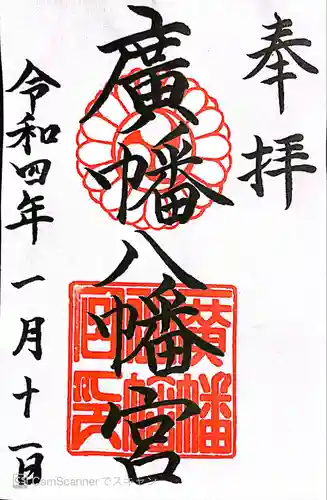 奉拝
廣幡八幡宮
令和四年一月十一日
CamScannerでスキャン